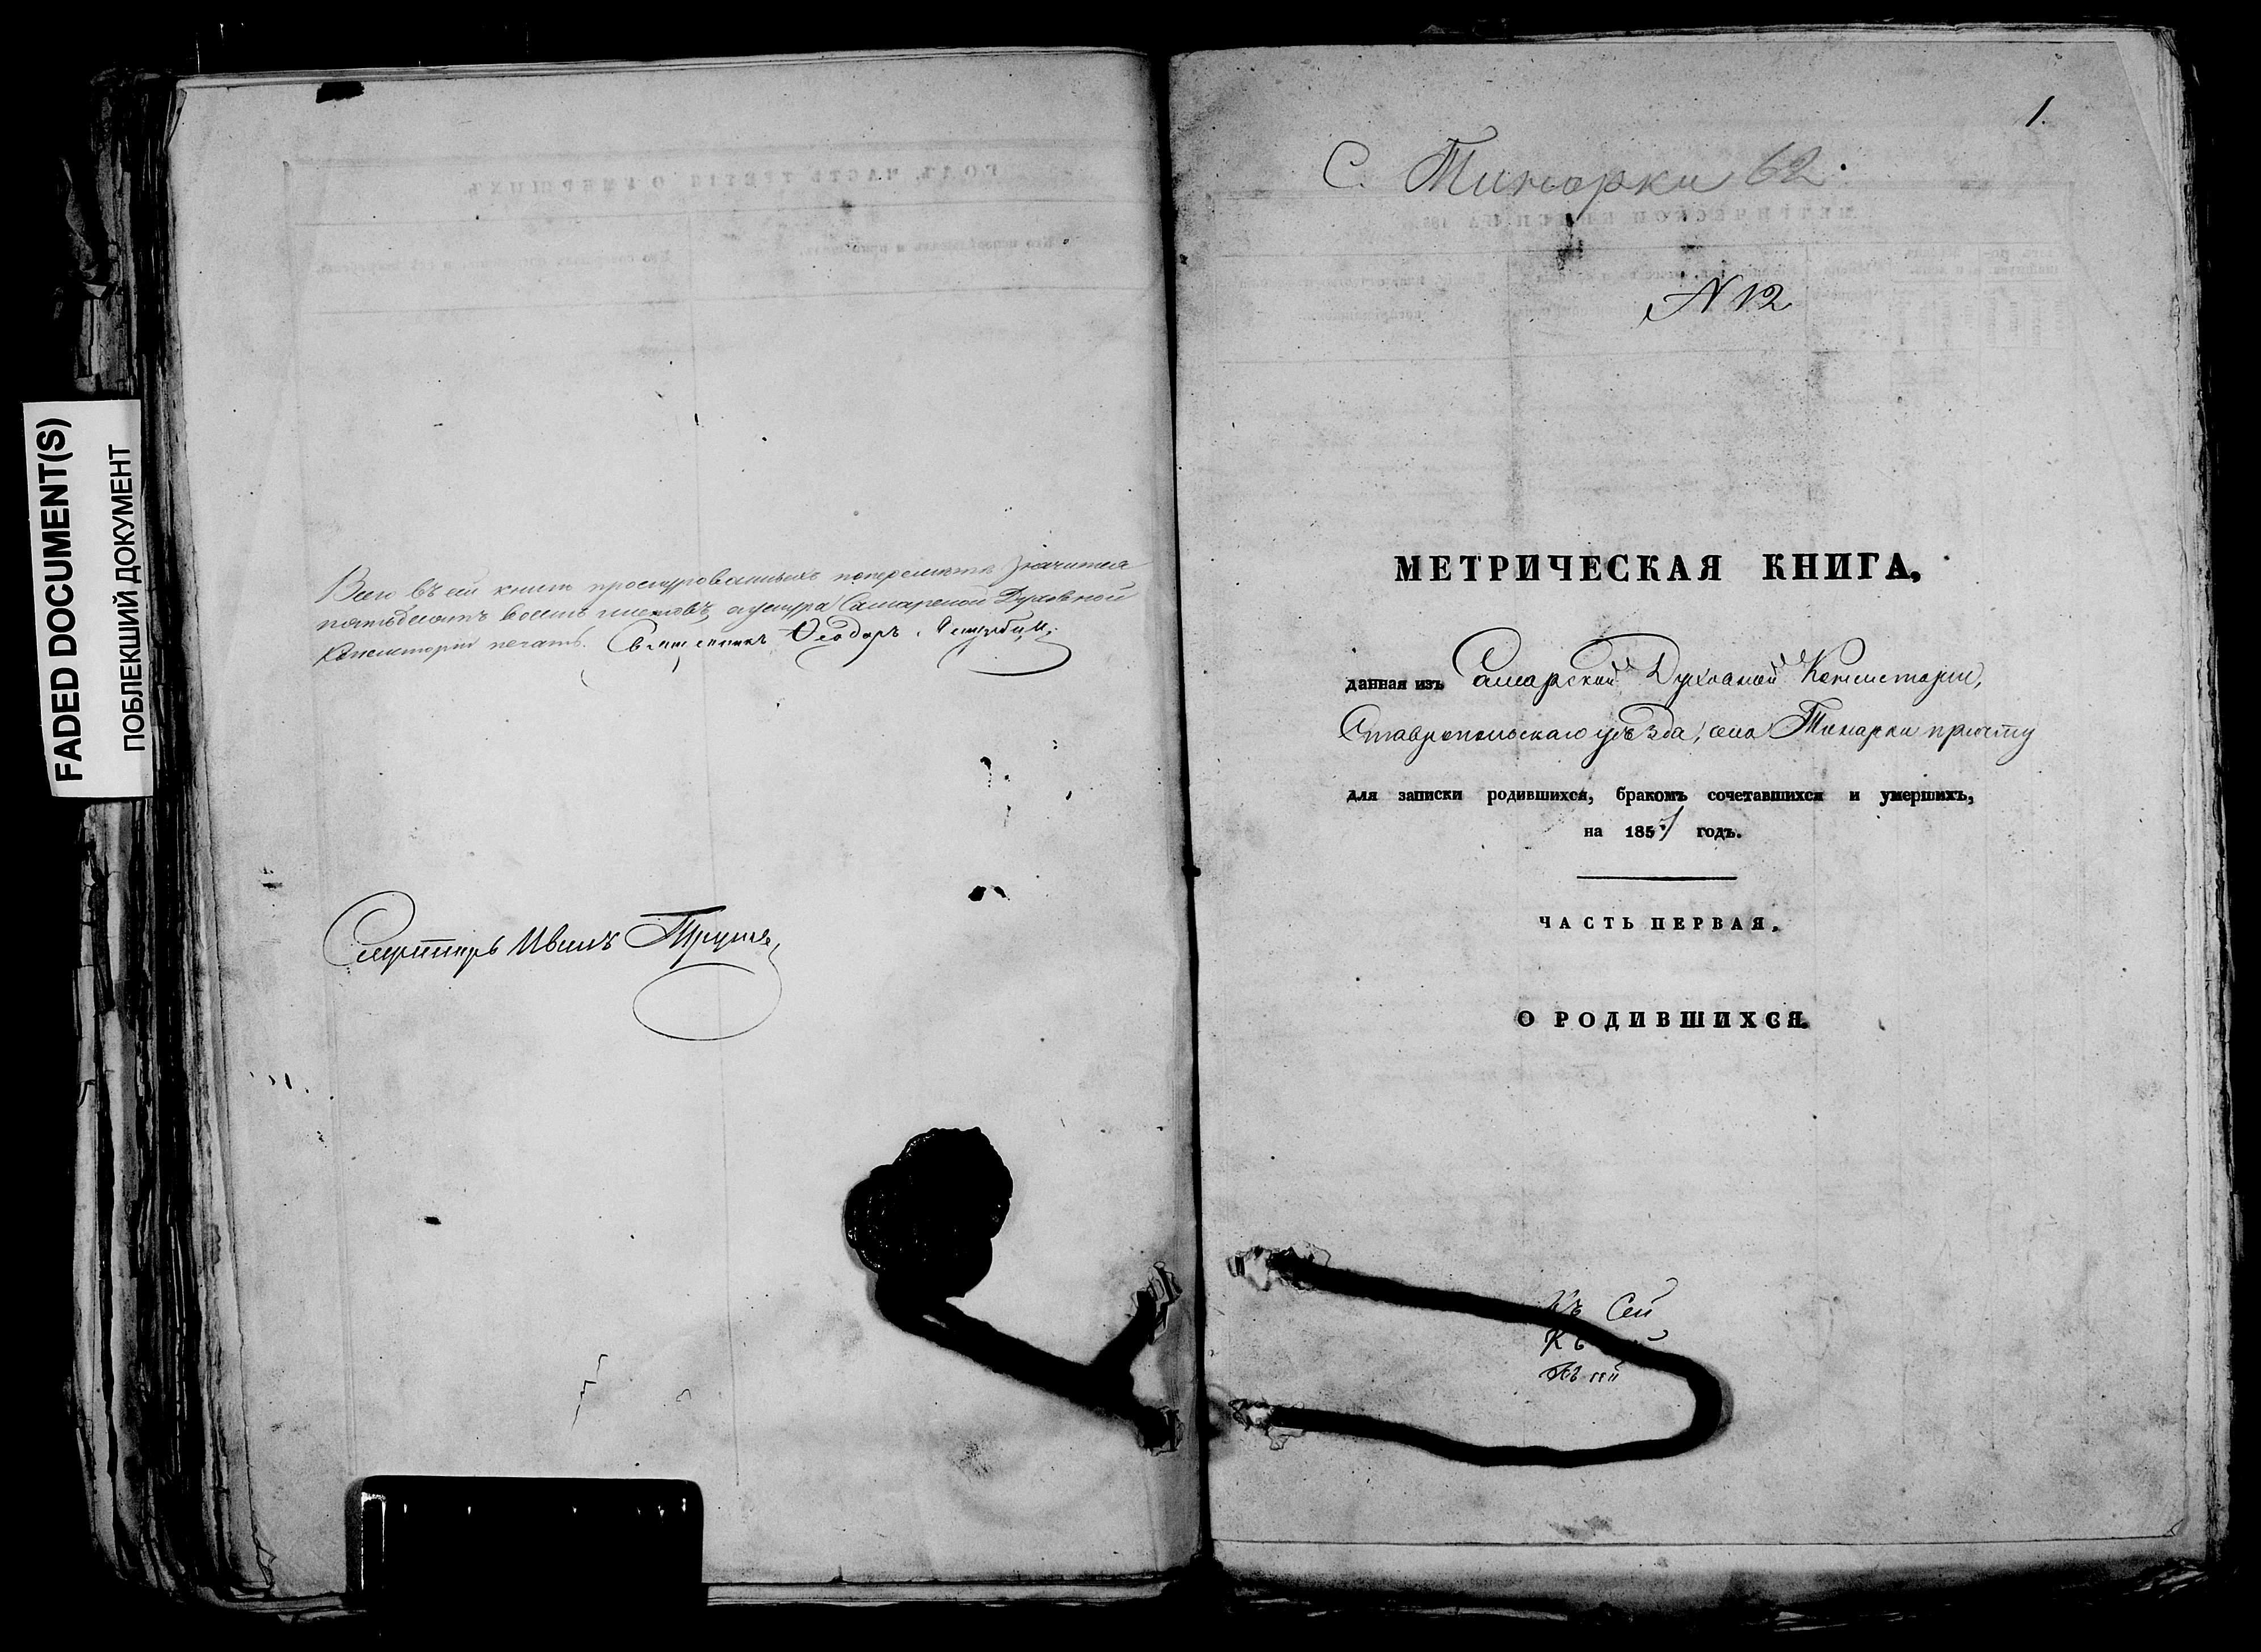 FADED DOCUMENT(S)
ПОБЛЕКШИЙ ДОКУМЕНТ
Всего въ сей книгѣ прошнурованныхъ значится
пятьдесятъ восемь листовъ, а у шнура Самарской Духовной
Консисторіи печать. Священникъ Ѳеодоръ
Секретарь Иванъ
1.
С. Тинарки 62.
N 12
МЕТРИЧЕСКАЯ КНИГА,
данная изъ Самарской Духовной Консисторіи,
Ставропольскаго уѣзда, села Тинарки причту
для записки родившихся, бракомъ сочетавшихся и умершихъ,
на 1857 годъ.
ЧАСТЬ ПЕРВАЯ.
О РОДИВШИХСЯ.
Къ Сей
Къ
Къ сей